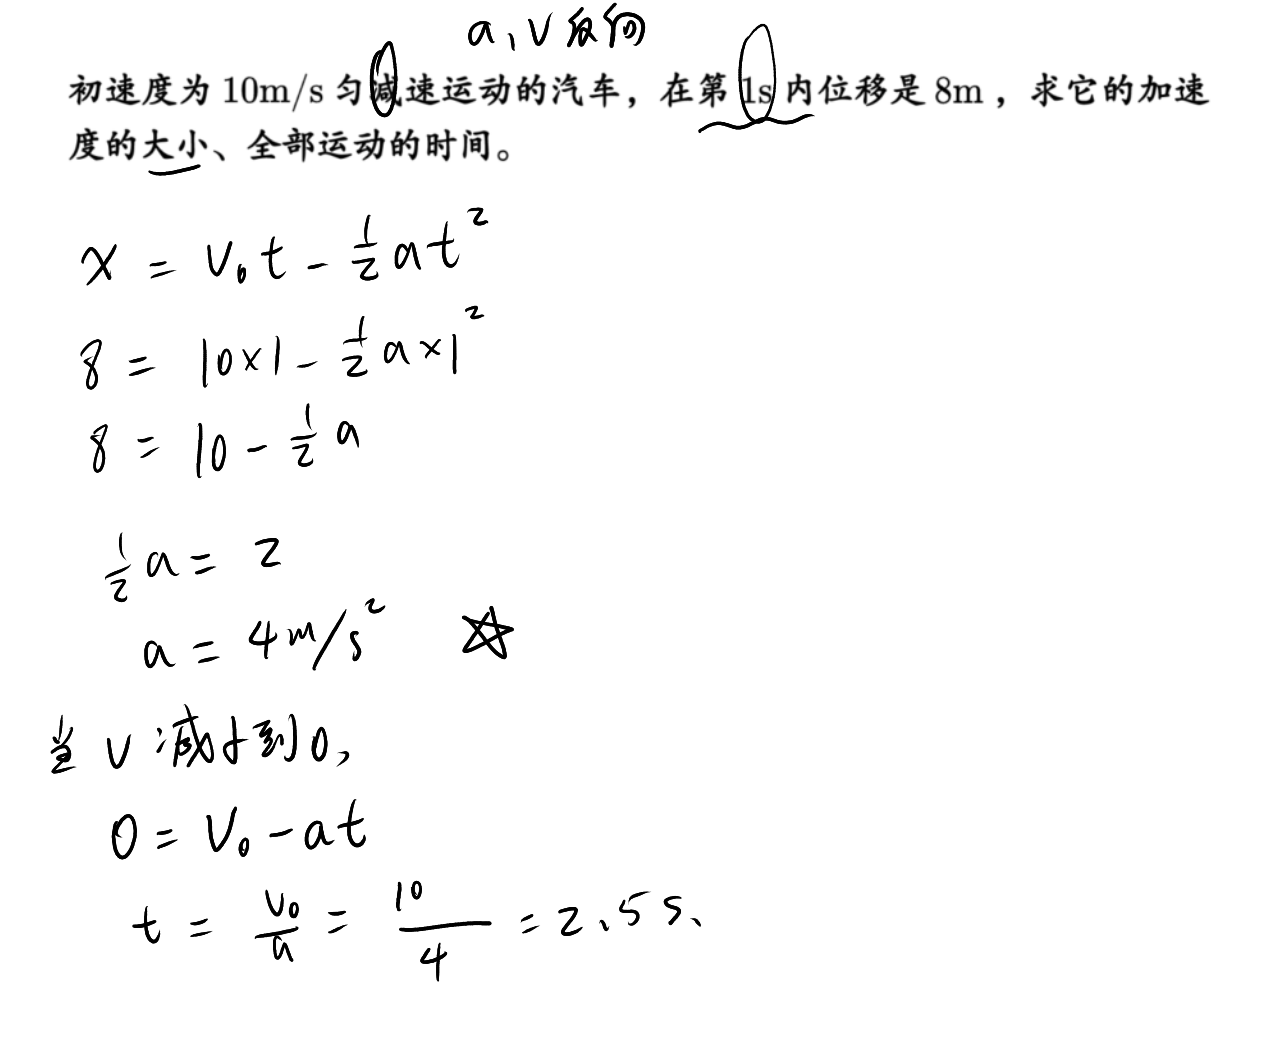 a、v反向
初速度为 10m/s 匀减速运动的汽车，在第 1s 内位移是 8m ，求它的加速
度的大小、全部运动的时间。
x = v₀t - ½at²
8 = 10×1 - ½a×1²
8 = 10 - ½a
½a = 2
a = 4m/s²
当 v 减少到0,
0 = v₀ - at
t = v₀/a = 10/4 = 2.5s.